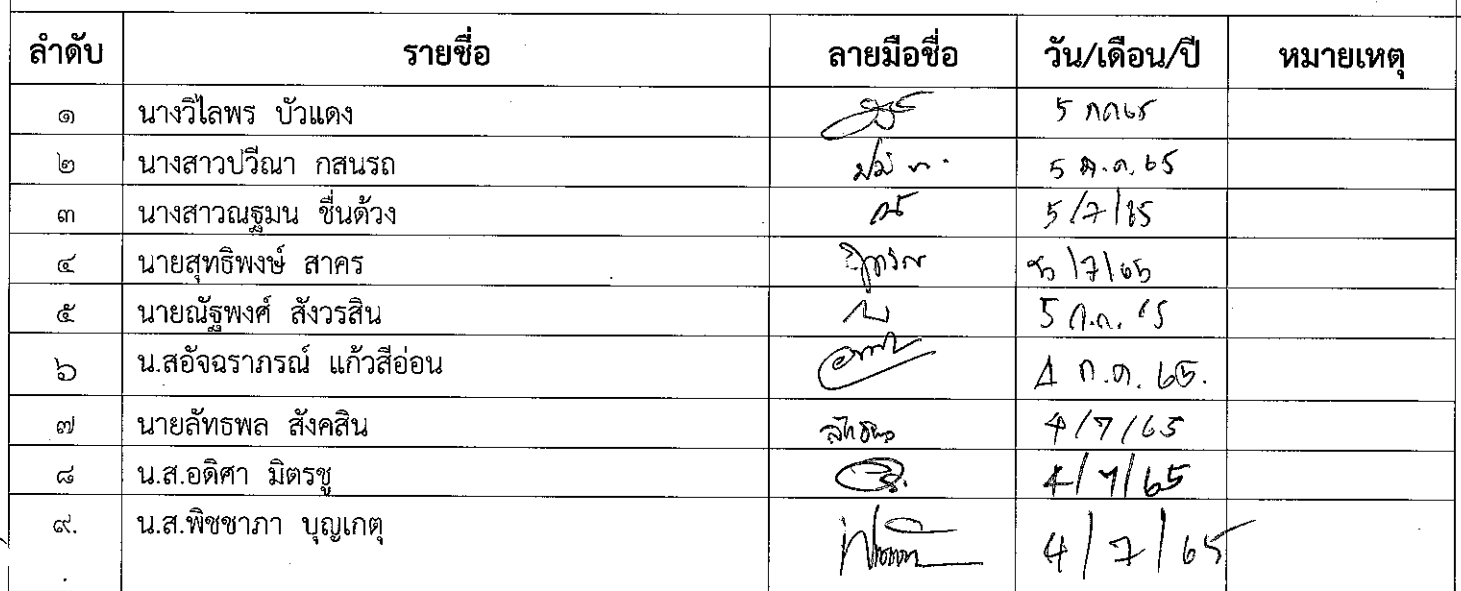 ลำดับ รายชื่อ ลายมือชื่อ วัน/เดือน/ปี หมายเหตุ
๑ นางวิไลพร บัวแดง 5 กค65
๒ นางสาวปวีณา กสนรถ 5 ก.ค. 65
๓ นางสาวณฐมน ชื่นด้วง 5/7/65
๔ นายสุทธิพงษ์ สาคร 5/7/65
๕ นายณัฐพงศ์ สังวรสิน 5 ก.ค. 65
๖ น.สอัจฉราภรณ์ แก้วสีอ่อน 4 ก.ค. 65.
๗ นายลัทธพล สังคสิน ลัทธพล 4/7/65
๘ น.ส.อดิศา มิตรชู 4/7/65
๙. น.ส.พิชชาภา บุญเกตุ 4/7/65